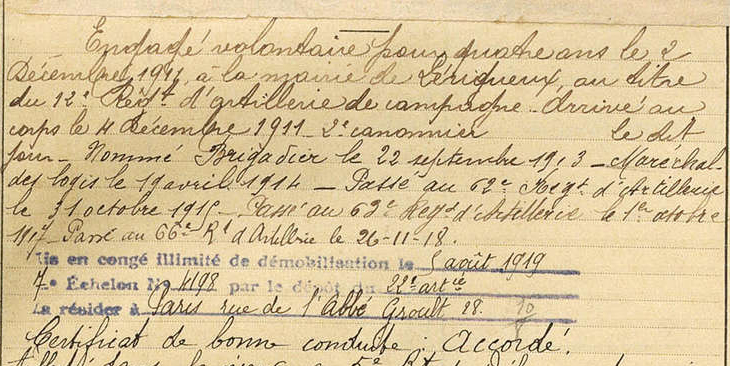 Engagé volontaire pour quatre ans le 2
Décembre 1911, à la mairie de Périgueux, au titre
du 12e Régt d'artillerie de campagne. Arrivé au
corps le 4 Décembre 1911 - 2e canonnier le dit
jour - Nommé Brigadier le 22 septembre 1913 - Maréchal-
des logis le 19 avril 1914 - Passé au 62e Regt d'Artillerie
le 31 octobre 1915 - Passé au 63e Regt d'Artillerie le 1er octobre
1917 - Passé au 66e Rt d'Artillerie le 26-11-18.
is en congé illimité de démobilisation le 5 août 1919
7e Échelon No 4198 par le dépôt du 22e artie
a résider à Paris rue de l'Abbé Groult 28.
Certificat de bonne conduite : Accordé.